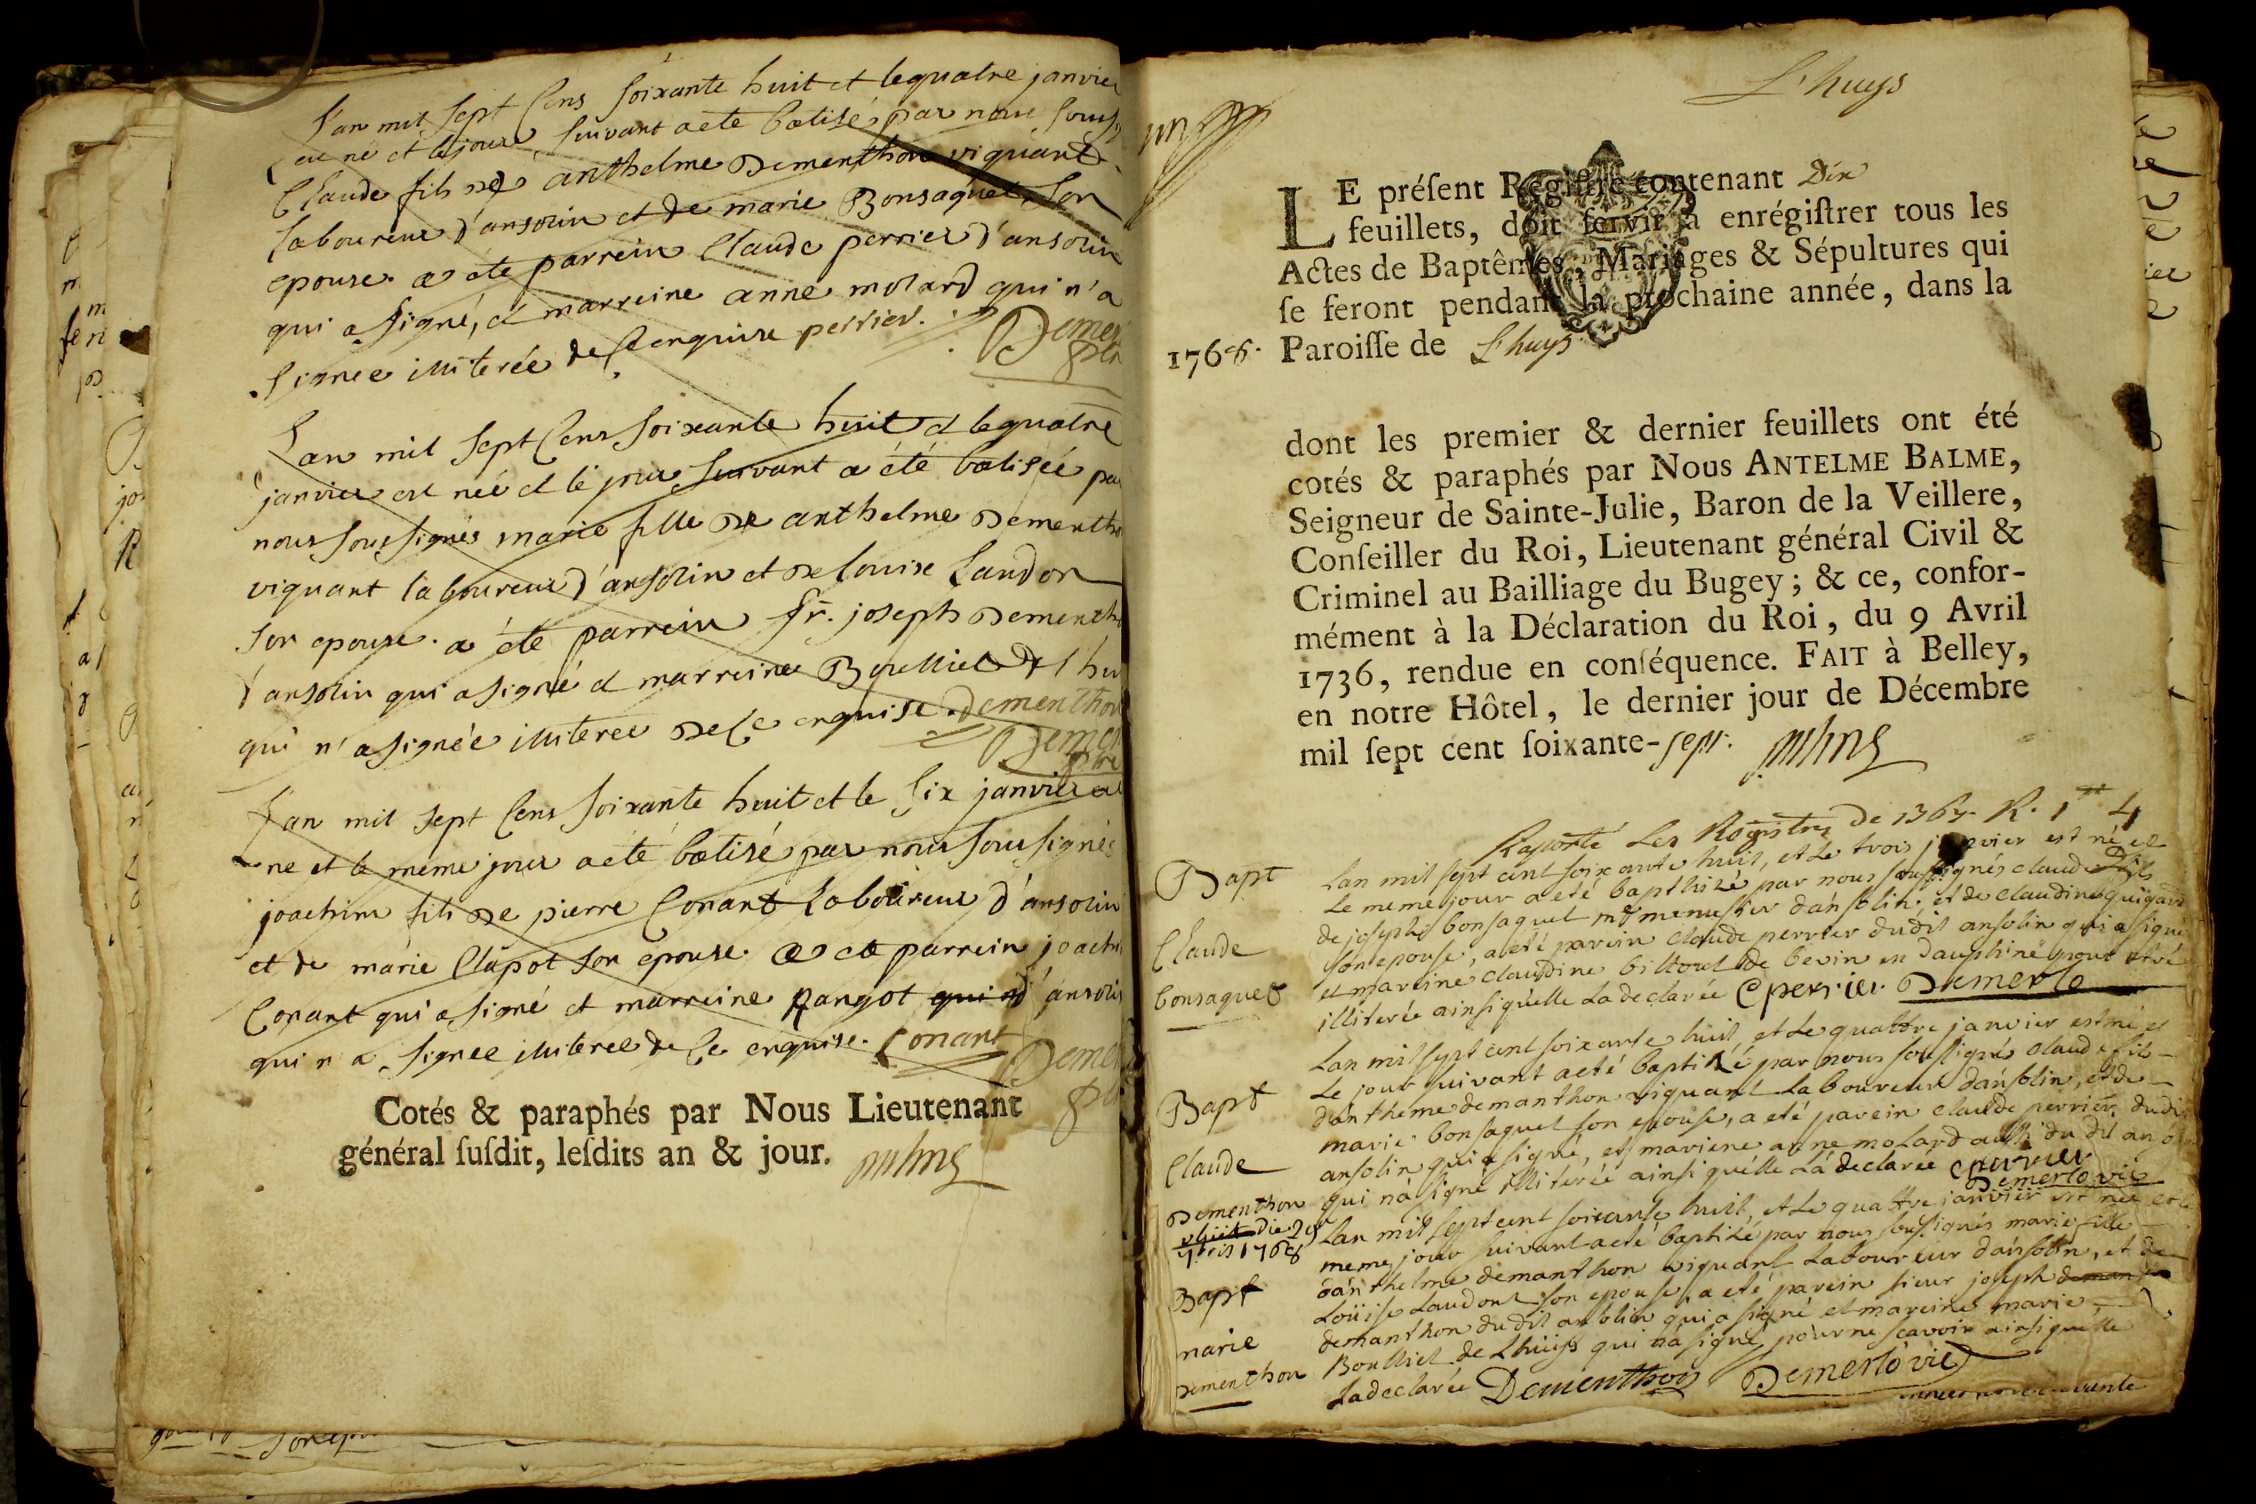 L'an mil sept Cens soixante huit et le quatre janvier
est né et le jour suivant a eté batisé par nous sous
Claude fils de anthelme Dementhon viquant
laboureur d'ansolin et de marie Bonsaquet son
epouse. a eté parrein Claude perrier d'ansolin
qui a signé, et marreine anne molard qui n'a
signée illiterée de ce enquise perrier.
L'an mil sept Cens soixante huit et le quatre
janvier est née et le jour suivant a été batisée par
nous soussignés marie fille de anthelme Dementhon
viquant laboureur d'ansolin et de Louise Laudon
son epouse. a été parrein Sr. joseph Dementhon
d'ansolin qui a signé et marreine Boulliet de l'hu
qui n'a signée illiteree de ce enquise. Dementhon
L'an mil sept Cens soixante huit et le six janvier est
né et le meme jour a été batisé par nous soussignés
joachim fils de pierre Conant Laboureur d'ansolin
et de marie Clapot son epouse. a été parrein joachi
Conant qui a signé et marreine pangot qui n' d'ansolin
qui n'a signee illiteree de ce enquise. Conant
Cotés & paraphés par Nous Lieutenant
général susdit, lesdits an & jour.
L'huys
LE présent Registre contenant Dix
feuillets, doit servir à enrégistrer tous les
Actes de Baptêmes, Mariages & Sépultures qui
se feront pendant la prochaine année, dans la
1768. Paroisse de L'huys
dont les premier & dernier feuillets ont été
cotés & paraphés par Nous ANTELME BALME,
Seigneur de Sainte-Julie, Baron de la Veillere,
Conseiller du Roi, Lieutenant général Civil &
Criminel au Bailliage du Bugey; & ce, confor-
mément à la Déclaration du Roi, du 9 Avril
1736, rendue en conséquence. FAIT à Belley,
en notre Hôtel, le dernier jour de Décembre
mil sept cent soixante-sept.
Raporté Les Registres de
Bapt
Claude
bonsaquet
Lan mil sept cent soixante huit, et Le trois janvier est né et
Le meme jour a eté baptisé par nous soussignés claude fils
de joseph bonsaquet me menusier dansolin, et de claudine quigard
son epouse, a eté parein claude perrier dudit ansolin qui a signé
et mareine claudine biltout de bevin en dauphiné pour etre
illiterée ainsi quelle La declarée C perrier Demerlo
Bapt
Claude
Dementhon
Lan mil sept cent soixante huit, et Le quattre janvier est né et
Le jour suivant a eté baptisé par nous soussignés claude fils
dantheme demanthon viquant Laboureur dansolin, et de
marie bonsaquet son epouse, a eté parein claude perrier dudit
ansolin qui a signé, et mariene anne molard aussi du dit
qui na signé illiterée ainsi quelle La declarée C perrier
Demerlovié
1768
Bapt
marie
Dementhon
Lan mil sept cent soixante huit, et Le quattre janvier est née et le
meme jour suivant a eté baptisé par nous soussignés marie fille
danthelme demanthon viquant Laboureur dansolin, et de
Loüise Laudont son epouse, a eté parein sieur joseph
demanthon dudit ansolin qui a signé et mareine marie
Boulliet de Lhuijs qui na signé pour ne scavoir ainsi quelle
La declarée Dementhon Demerlovié